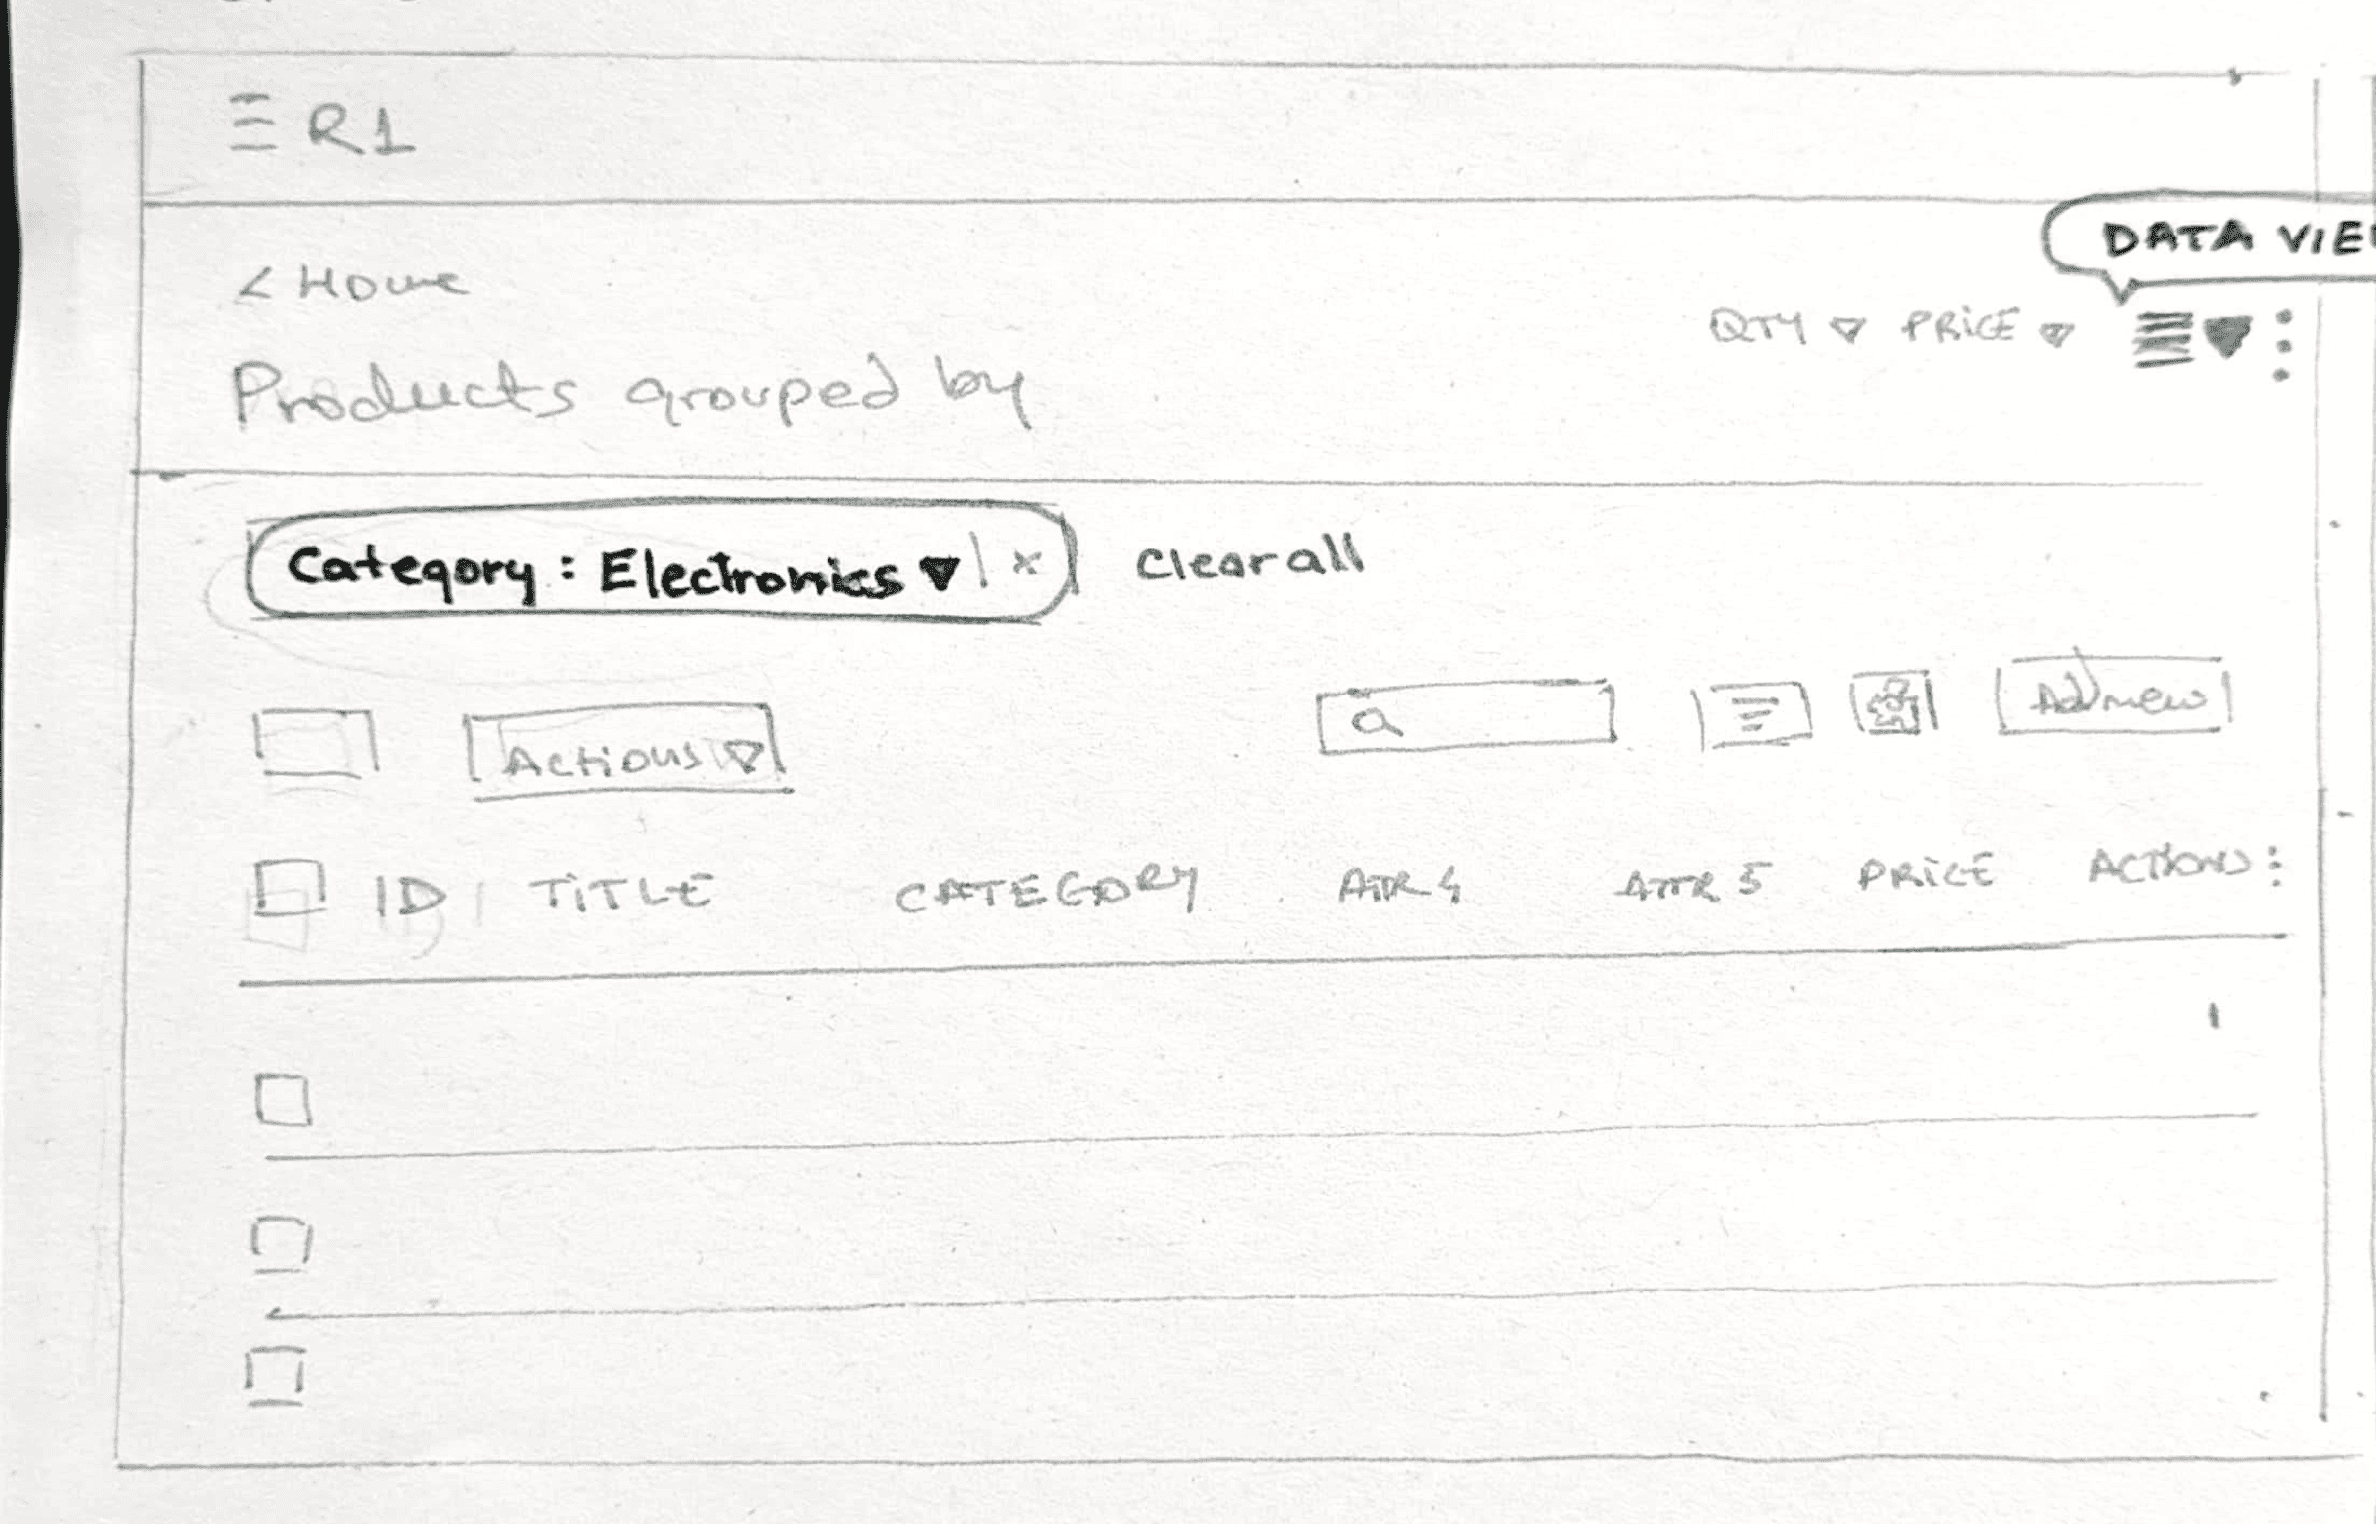 R1
DATA VIE
< Home
QTY PRICE
Products grouped by
Category : Electronics x Clear all
Actions Add new
ID TITLE CATEGORY ATTR 4 ATTR 5 PRICE ACTIONS